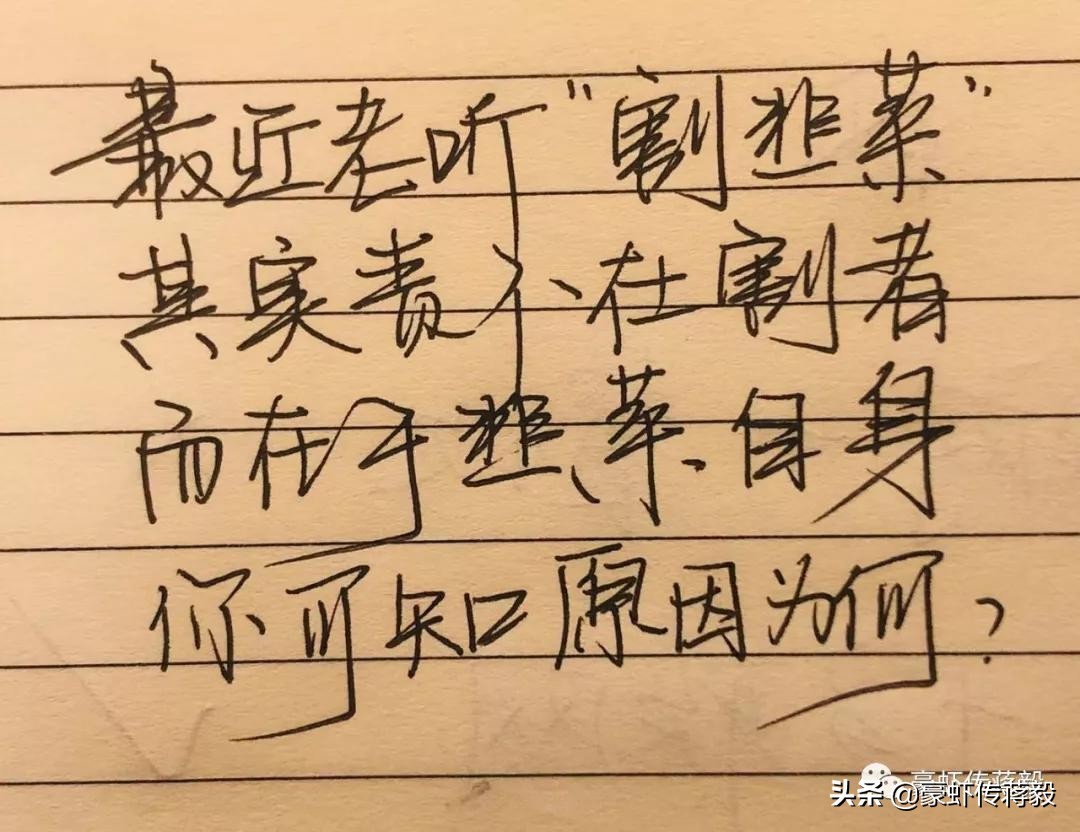 最近老听“割韭菜”
其实责不在割者
而在于韭菜自身
你可知原因为何？
豪虾传蒋毅
头条 @豪虾传蒋毅